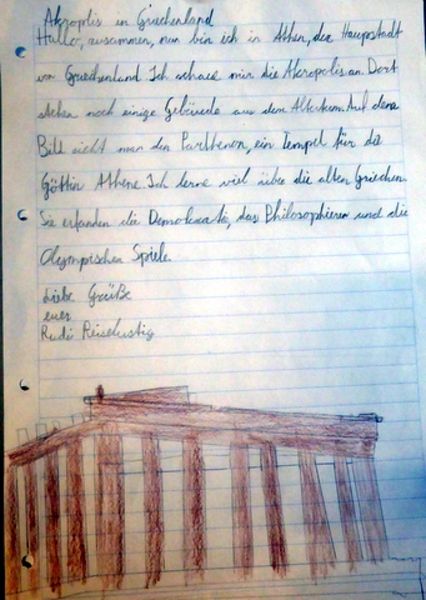 Akropolis in Griechenland
Hallo, zusammen, nun bin ich in Athen, der Hauptstadt
von Griechenland. Ich schaue mir die Akropolis an. Dort
stehen noch einige Gebäude aus dem Altertum. Auf dem
Bild sieht man den Parthenon, ein Tempel für die
Göttin Athene. Ich lerne viel über die alten Griechen.
Sie erfanden die Demokratie, das Philosophieren und die
Olympischen Spiele.
Liebe Grüße
euer
Rudi Reiselustig